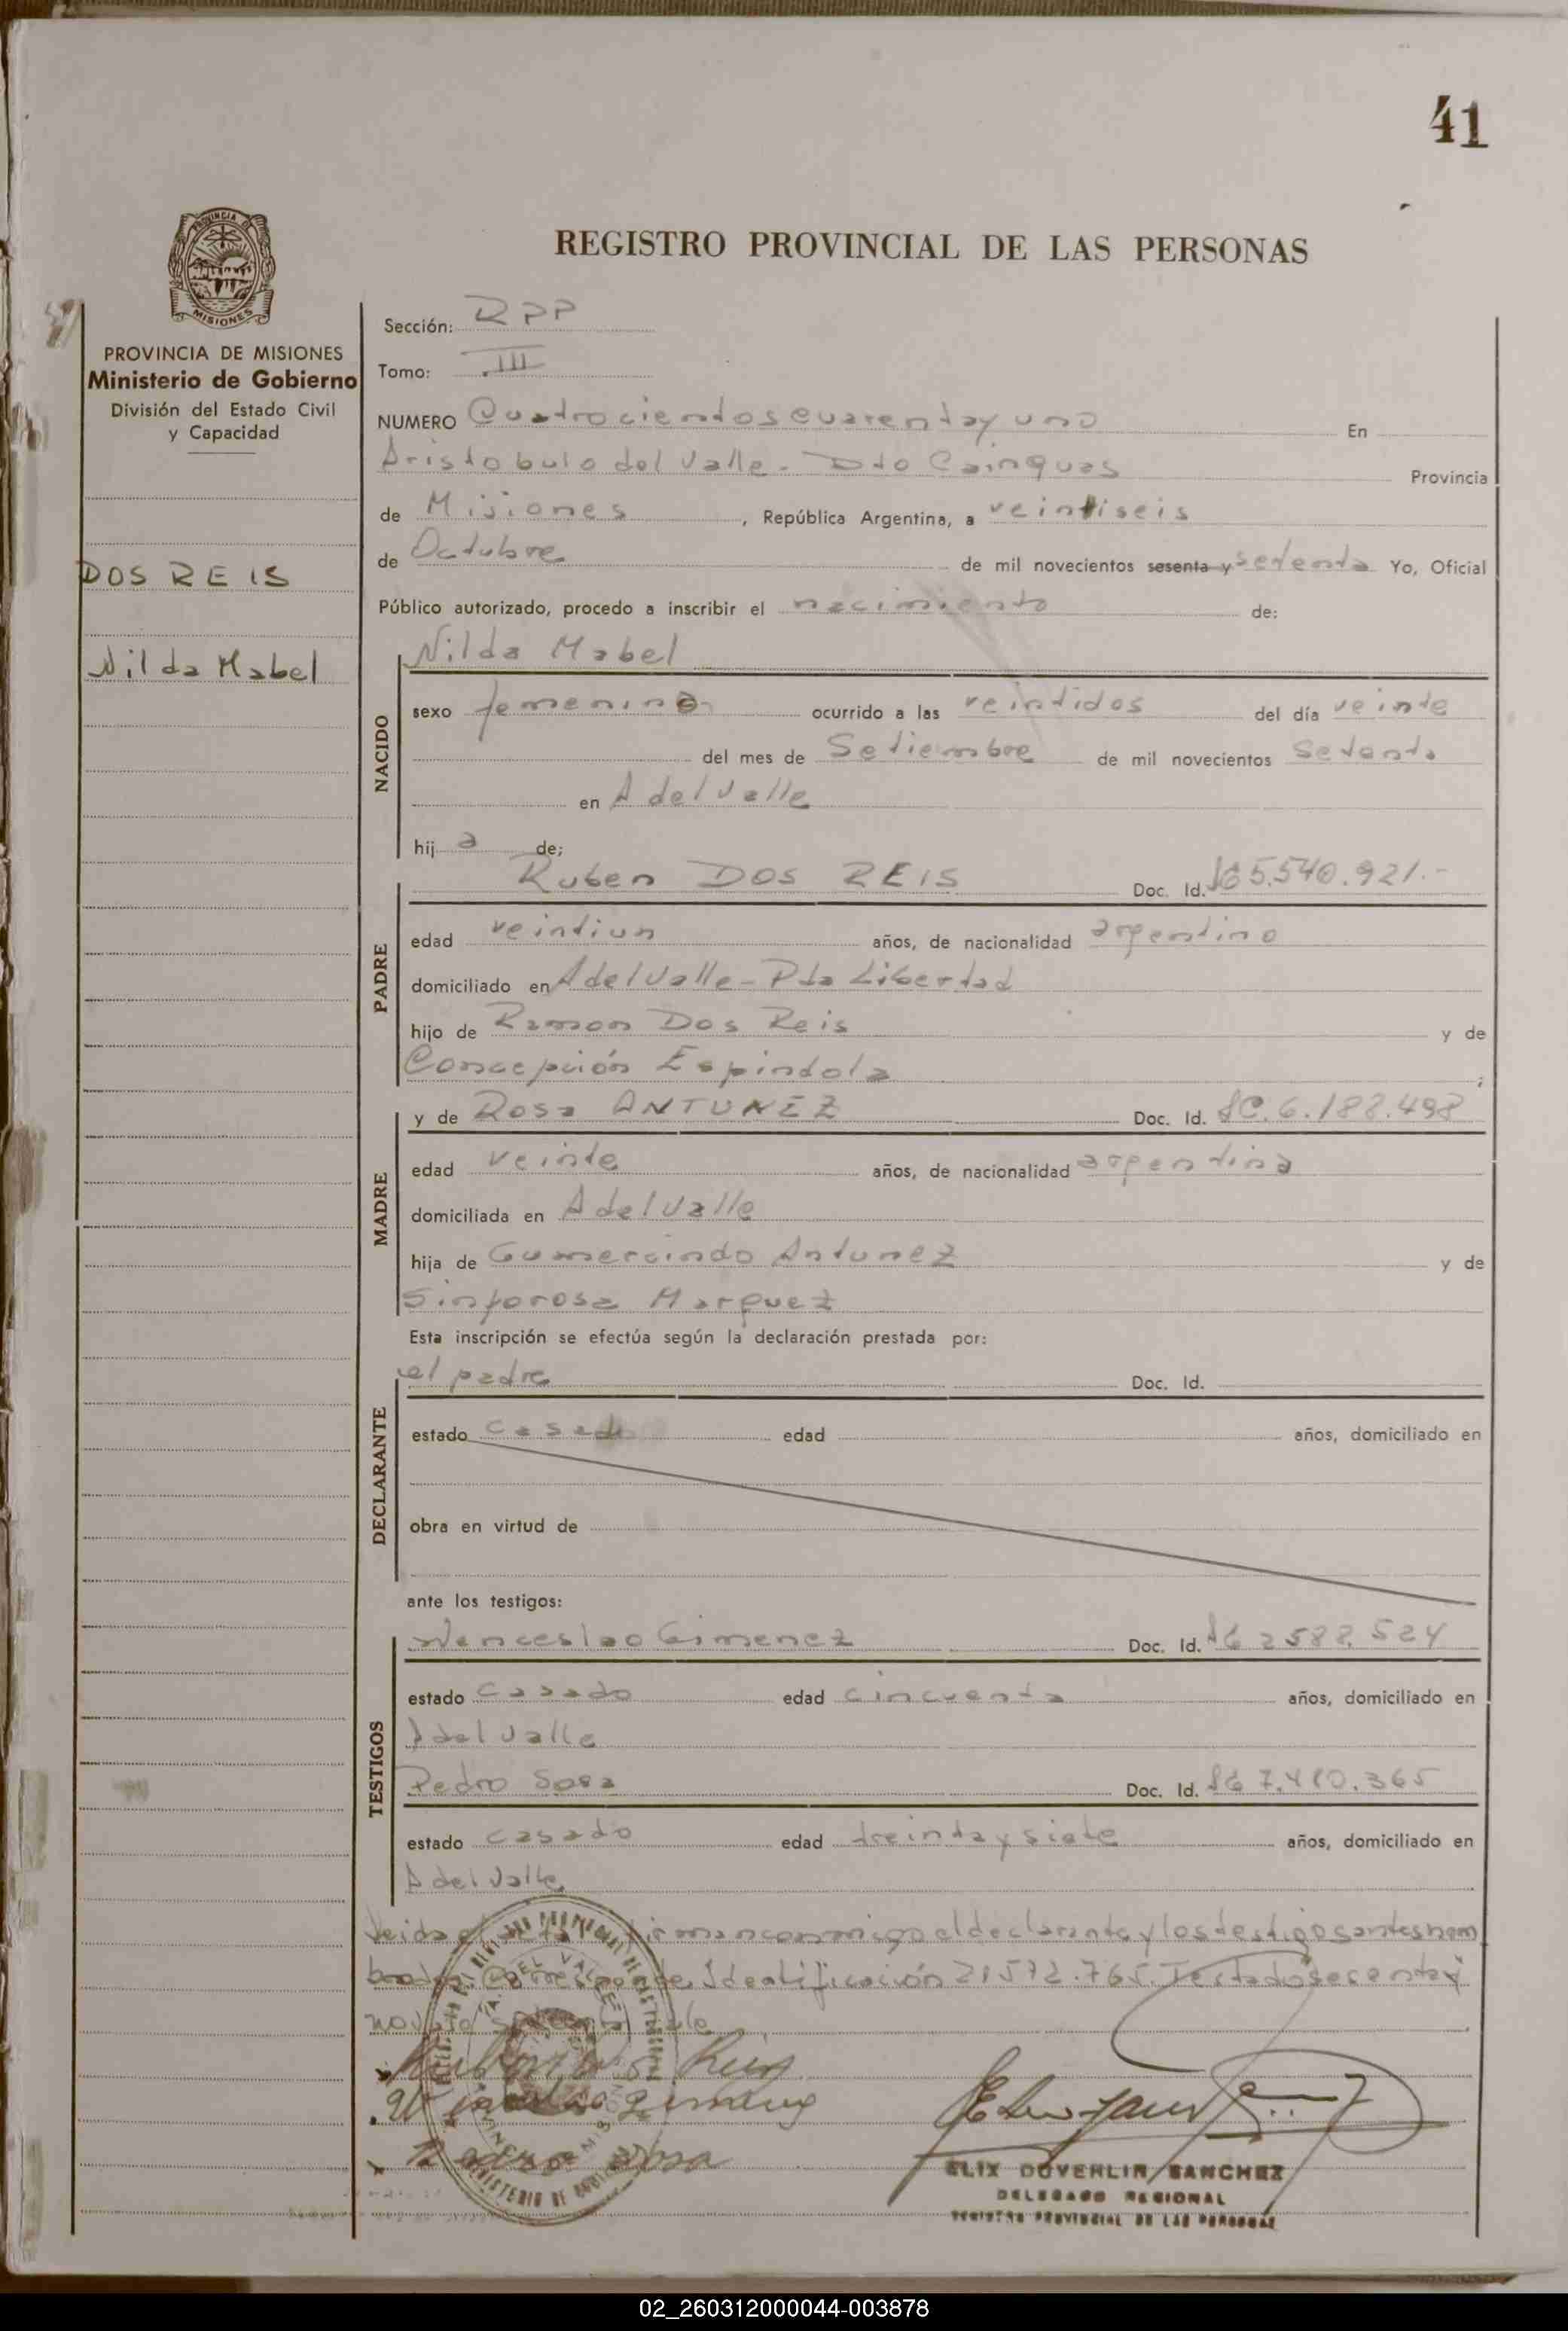 41
REGISTRO PROVINCIAL DE LAS PERSONAS
PROVINCIA DE
MISIONES
PROVINCIA DE MISIONES
Ministerio de Gobierno
División del Estado Civil
y Capacidad
DOS REIS
Nilda Mabel
Sección: RPP
Tomo: III
NUMERO Cuatrocientos cuarenta y uno En
Aristobulo del Valle - Dto Cainguas Provincia
de Misiones, República Argentina, a veintiseis
de Octubre de mil novecientos sesenta y setenta Yo, Oficial
Público autorizado, procedo a inscribir el nacimiento de:
Nilda Mabel
NACIDO
sexo femenino ocurrido a las veintidos del día veinte
del mes de Setiembre de mil novecientos Setenta
en A del Valle
hij a de;
Ruben DOS REIS Doc. Id. 5.540.921.-
PADRE
edad veintiun años, de nacionalidad argentino
domiciliado en A del Valle - Pda Libertad
hijo de Ramon Dos Reis y de
Concepción Espindola ;
y de Rosa ANTUNEZ Doc. Id. 6.188.498
MADRE
edad veinte años, de nacionalidad argentina
domiciliada en A del Valle
hija de Gumercindo Antunez y de
Sinforosa Marquez
Esta inscripción se efectúa según la declaración prestada por:
el padre Doc. Id.
DECLARANTE
estado casado edad años, domiciliado en
obra en virtud de
ante los testigos:
Wenceslao Gimenez Doc. Id. 2588.524
TESTIGOS
estado casado edad cincuenta años, domiciliado en
A del Valle
Pedro Sosa Doc. Id. 7.410.365
estado casado edad treinta y siete años, domiciliado en
A del Valle
Leida el acta firman conmigo el declarante y los testigos antes nom
brados Corresponde Identificación 21.572.765. Testado sesenta y
no vale
Pedro Sosa
ELIX DOVERLIR SANCHEZ
DELEGADO REGIONAL
REGISTRO PROVINCIAL DE LAS PERSONAS
02_260312000044-003878